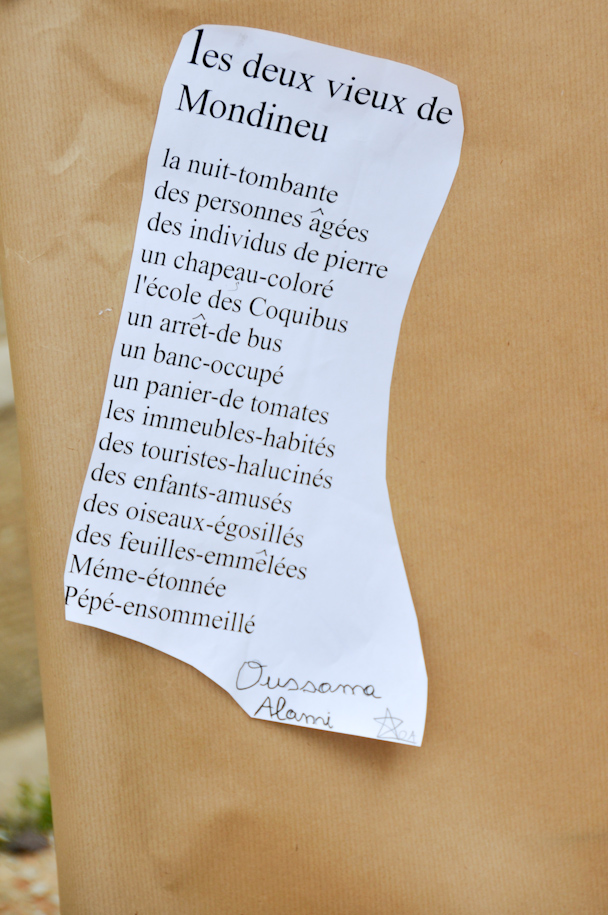 les deux vieux de
Mondineu
la nuit-tombante
des personnes âgées
des individus de pierre
un chapeau-coloré
l'école des Coquibus
un arrêt-de bus
un banc-occupé
un panier-de tomates
les immeubles-habités
des touristes-halucinés
des enfants-amusés
des oiseaux-égosillés
des feuilles-emmêlées
Méme-étonnée
Pépé-ensommeillé
Oussama
Alami